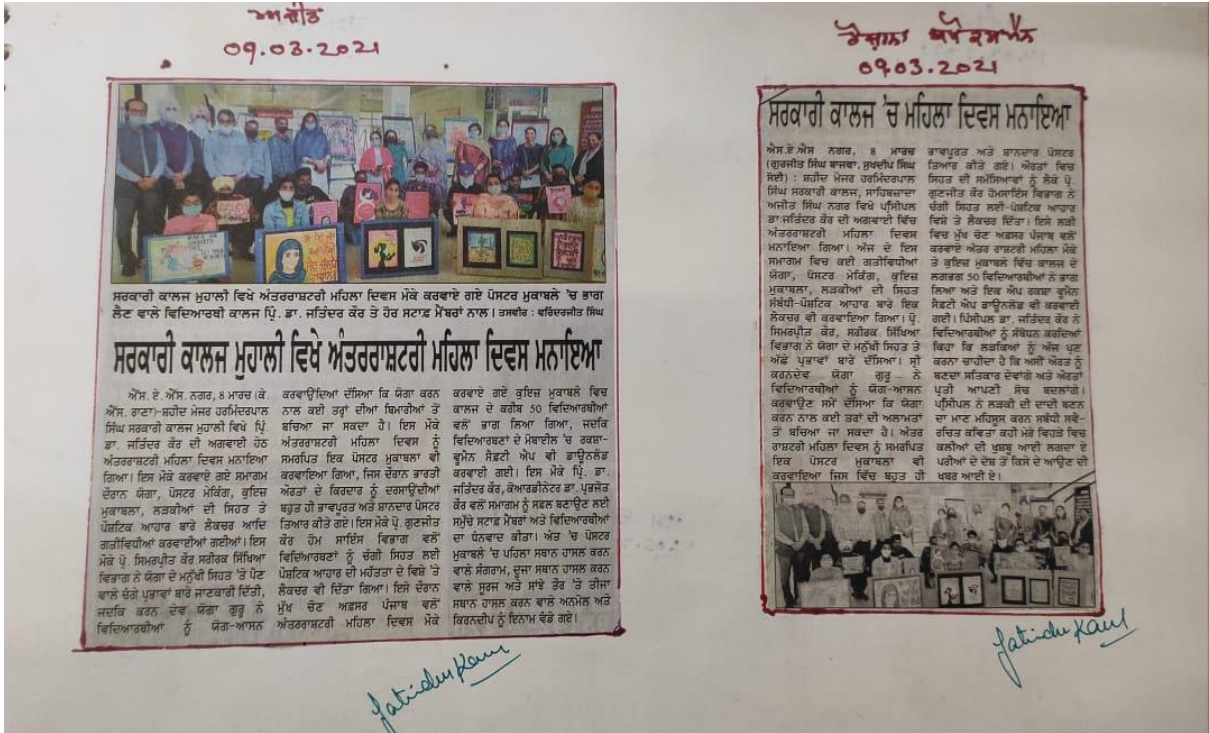 ਅਜੀਤ
09.03.2021
ਸਰਕਾਰੀ ਕਾਲਜ ਮੁਹਾਲੀ ਵਿਖੇ ਅੰਤਰਰਾਸ਼ਟਰੀ ਮਹਿਲਾ ਦਿਵਸ ਮੌਕੇ ਕਰਵਾਏ ਗਏ ਪੋਸਟਰ ਮੁਕਾਬਲੇ 'ਚ ਭਾਗ
ਲੈਣ ਵਾਲੇ ਵਿਦਿਆਰਥੀ ਕਾਲਜ ਪ੍ਰਿੰ. ਡਾ. ਜਤਿੰਦਰ ਕੌਰ ਤੇ ਹੋਰ ਸਟਾਫ਼ ਮੈਂਬਰਾਂ ਨਾਲ। ਤਸਵੀਰ : ਵਰਿੰਦਰਜੀਤ ਸਿੰਘ
ਸਰਕਾਰੀ ਕਾਲਜ ਮੁਹਾਲੀ ਵਿਖੇ ਅੰਤਰਰਾਸ਼ਟਰੀ ਮਹਿਲਾ ਦਿਵਸ ਮਨਾਇਆ
ਐੱਸ. ਏ. ਐੱਸ. ਨਗਰ, 8 ਮਾਰਚ (ਕੇ.
ਐੱਸ. ਰਾਣਾ)-ਸ਼ਹੀਦ ਮੇਜਰ ਹਰਮਿੰਦਰਪਾਲ
ਸਿੰਘ ਸਰਕਾਰੀ ਕਾਲਜ ਮੁਹਾਲੀ ਵਿਖੇ ਪ੍ਰਿੰ.
ਡਾ. ਜਤਿੰਦਰ ਕੌਰ ਦੀ ਅਗਵਾਈ ਹੇਠ
ਅੰਤਰਰਾਸ਼ਟਰੀ ਮਹਿਲਾ ਦਿਵਸ ਮਨਾਇਆ
ਗਿਆ। ਇਸ ਮੌਕੇ ਕਰਵਾਏ ਗਏ ਸਮਾਗਮ
ਦੌਰਾਨ ਯੋਗਾ, ਪੋਸਟਰ ਮੇਕਿੰਗ, ਕੁਇਜ਼
ਮੁਕਾਬਲਾ, ਲੜਕੀਆਂ ਦੀ ਸਿਹਤ ਤੇ
ਪੌਸ਼ਟਿਕ ਆਹਾਰ ਬਾਰੇ ਲੈਕਚਰ ਆਦਿ
ਗਤੀਵਿਧੀਆਂ ਕਰਵਾਈਆਂ ਗਈਆਂ। ਇਸ
ਮੌਕੇ ਪ੍ਰੋ. ਸਿਮਰਪ੍ਰੀਤ ਕੌਰ ਸਰੀਰਕ ਸਿੱਖਿਆ
ਵਿਭਾਗ ਨੇ ਯੋਗਾ ਦੇ ਮਨੁੱਖੀ ਸਿਹਤ 'ਤੇ ਪੈਣ
ਵਾਲੇ ਚੰਗੇ ਪ੍ਰਭਾਵਾਂ ਬਾਰੇ ਜਾਣਕਾਰੀ ਦਿੱਤੀ,
ਜਦਕਿ ਕਰਨ ਦੇਵ ਯੋਗਾ ਗੁਰੂ ਨੇ
ਵਿਦਿਆਰਥੀਆਂ ਨੂੰ ਯੋਗ-ਆਸਨ
ਕਰਵਾਉਂਦਿਆਂ ਦੱਸਿਆ ਕਿ ਯੋਗਾ ਕਰਨ
ਨਾਲ ਕਈ ਤਰ੍ਹਾਂ ਦੀਆਂ ਬਿਮਾਰੀਆਂ ਤੋਂ
ਬਚਿਆ ਜਾ ਸਕਦਾ ਹੈ। ਇਸ ਮੌਕੇ
ਅੰਤਰਰਾਸ਼ਟਰੀ ਮਹਿਲਾ ਦਿਵਸ ਨੂੰ
ਸਮਰਪਿਤ ਇਕ ਪੋਸਟਰ ਮੁਕਾਬਲਾ ਵੀ
ਕਰਵਾਇਆ ਗਿਆ, ਜਿਸ ਦੌਰਾਨ ਭਾਰਤੀ
ਔਰਤਾਂ ਦੇ ਕਿਰਦਾਰ ਨੂੰ ਦਰਸਾਉਂਦੀਆਂ
ਬਹੁਤ ਹੀ ਭਾਵਪੂਰਤ ਅਤੇ ਸ਼ਾਨਦਾਰ ਪੋਸਟਰ
ਤਿਆਰ ਕੀਤੇ ਗਏ। ਇਸ ਮੌਕੇ ਪ੍ਰੋ. ਗੁਣਜੀਤ
ਕੌਰ ਹੋਮ ਸਾਇੰਸ ਵਿਭਾਗ ਵਲੋਂ
ਵਿਦਿਆਰਥਣਾਂ ਨੂੰ ਚੰਗੀ ਸਿਹਤ ਲਈ
ਪੌਸ਼ਟਿਕ ਆਹਾਰ ਦੀ ਮਹੱਤਤਾ ਦੇ ਵਿਸ਼ੇ 'ਤੇ
ਲੈਕਚਰ ਵੀ ਦਿੱਤਾ ਗਿਆ। ਇਸੇ ਦੌਰਾਨ
ਮੁੱਖ ਚੋਣ ਅਫ਼ਸਰ ਪੰਜਾਬ ਵਲੋਂ
ਅੰਤਰਰਾਸ਼ਟਰੀ ਮਹਿਲਾ ਦਿਵਸ ਮੌਕੇ
ਕਰਵਾਏ ਗਏ ਕੁਇਜ਼ ਮੁਕਾਬਲੇ ਵਿਚ
ਕਾਲਜ ਦੇ ਕਰੀਬ 50 ਵਿਦਿਆਰਥੀਆਂ
ਵਲੋਂ ਭਾਗ ਲਿਆ ਗਿਆ, ਜਦਕਿ
ਵਿਦਿਆਰਥਣਾਂ ਦੇ ਮੋਬਾਈਲ 'ਚ ਰਕਸ਼ਾ-
ਵੂਮੈਨ ਸੇਫ਼ਟੀ ਐਪ ਵੀ ਡਾਊਨਲੋਡ
ਕਰਵਾਈ ਗਈ। ਇਸ ਮੌਕੇ ਪ੍ਰਿੰ. ਡਾ.
ਜਤਿੰਦਰ ਕੌਰ, ਕੋਆਰਡੀਨੇਟਰ ਡਾ. ਪ੍ਰਭਜੋਤ
ਕੌਰ ਵਲੋਂ ਸਮਾਗਮ ਨੂੰ ਸਫ਼ਲ ਬਣਾਉਣ ਲਈ
ਸਮੁੱਚੇ ਸਟਾਫ਼ ਮੈਂਬਰਾਂ ਅਤੇ ਵਿਦਿਆਰਥੀਆਂ
ਦਾ ਧੰਨਵਾਦ ਕੀਤਾ। ਅੰਤ 'ਚ ਪੋਸਟਰ
ਮੁਕਾਬਲੇ 'ਚ ਪਹਿਲਾ ਸਥਾਨ ਹਾਸਲ ਕਰਨ
ਵਾਲੇ ਸੰਗਰਾਮ, ਦੂਜਾ ਸਥਾਨ ਹਾਸਲ ਕਰਨ
ਵਾਲੇ ਸੂਰਜ ਅਤੇ ਸਾਂਝੇ ਤੌਰ 'ਤੇ ਤੀਜਾ
ਸਥਾਨ ਹਾਸਲ ਕਰਨ ਵਾਲੇ ਅਨਮੋਲ ਅਤੇ
ਕਿਰਨਦੀਪ ਨੂੰ ਇਨਾਮ ਵੰਡੇ ਗਏ।
Jatinder Kaur
ਰੋਜ਼ਾਨਾ
09.03.2021
ਸਰਕਾਰੀ ਕਾਲਜ 'ਚ ਮਹਿਲਾ ਦਿਵਸ ਮਨਾਇਆ
ਐਸ.ਏ.ਐਸ ਨਗਰ, 8 ਮਾਰਚ
(ਗੁਰਜੀਤ ਸਿੰਘ ਬਾਜਵਾ, ਸੁਖਦੀਪ ਸਿੰਘ
ਸੋਈ) : ਸ਼ਹੀਦ ਮੇਜਰ ਹਰਮਿੰਦਰਪਾਲ
ਸਿੰਘ ਸਰਕਾਰੀ ਕਾਲਜ, ਸਾਹਿਬਜ਼ਾਦਾ
ਅਜੀਤ ਸਿੰਘ ਨਗਰ ਵਿਖੇ ਪ੍ਰਿੰਸੀਪਲ
ਡਾ:ਜਤਿੰਦਰ ਕੌਰ ਦੀ ਅਗਵਾਈ ਵਿੱਚ
ਅੰਤਰਰਾਸ਼ਟਰੀ ਮਹਿਲਾ ਦਿਵਸ
ਮਨਾਇਆ ਗਿਆ। ਅੱਜ ਦੇ ਇਸ
ਸਮਾਗਮ ਵਿਚ ਕਈ ਗਤੀਵਿਧੀਆਂ
ਯੋਗਾ, ਪੋਸਟਰ ਮੇਕਿੰਗ, ਕੁਇਜ਼
ਮੁਕਾਬਲਾ, ਲੜਕੀਆਂ ਦੀ ਸਿਹਤ
ਸੰਬੰਧੀ-ਪੌਸ਼ਟਿਕ ਆਹਾਰ ਬਾਰੇ ਇਕ
ਲੈਕਚਰ ਵੀ ਕਰਵਾਇਆ ਗਿਆ। ਪ੍ਰੋ.
ਸਿਮਰਪ੍ਰੀਤ ਕੌਰ, ਸਰੀਰਕ ਸਿੱਖਿਆ
ਵਿਭਾਗ ਨੇ ਯੋਗਾ ਦੇ ਮਨੁੱਖੀ ਸਿਹਤ ਤੇ
ਅੱਛੇ ਪ੍ਰਭਾਵਾਂ ਬਾਰੇ ਦੱਸਿਆ। ਸ੍ਰੀ
ਕਰਨਦੇਵ ਯੋਗਾ ਗੁਰੂ ਨੇ
ਵਿਦਿਆਰਥੀਆਂ ਨੂੰ ਯੋਗ-ਆਸਨ
ਕਰਵਾਉਣ ਸਮੇਂ ਦੱਸਿਆ ਕਿ ਯੋਗਾ
ਕਰਨ ਨਾਲ ਕਈ ਤਰਾਂ ਦੀ ਅਲਾਮਤਾਂ
ਤੋਂ ਬਚਿਆ ਜਾ ਸਕਦਾ ਹੈ। ਅੰਤਰ
ਰਾਸ਼ਟਰੀ ਮਹਿਲਾ ਦਿਵਸ ਨੂੰ ਸਮਰਪਿਤ
ਇਕ ਪੋਸਟਰ ਮੁਕਾਬਲਾ ਵੀ
ਕਰਵਾਇਆ ਜਿਸ ਵਿੱਚ ਬਹੁਤ ਹੀ
ਭਾਵਪੂਰਤ ਅਤੇ ਸ਼ਾਨਦਾਰ ਪੋਸਟਰ
ਤਿਆਰ ਕੀਤੇ ਗਏ। ਔਰਤਾਂ ਵਿਚ
ਸਿਹਤ ਦੀ ਸਮੱਸਿਆਵਾਂ ਨੂੰ ਲੈਕੇ ਪ੍ਰੋ.
ਗੁਣਜੀਤ ਕੌਰ ਹੋਮਸਾਇੰਸ ਵਿਭਾਗ ਨੇ
ਚੰਗੀ ਸਿਹਤ ਲਈ-ਪੌਸ਼ਟਿਕ ਆਹਾਰ
ਵਿਸ਼ੇ ਤੇ ਲੈਕਚਰ ਦਿੱਤਾ। ਇਸੇ ਲੜੀ
ਵਿਚ ਮੁੱਖ ਚੋਣ ਅਫ਼ਸਰ ਪੰਜਾਬ ਵਲੋਂ
ਕਰਵਾਏ ਅੰਤਰ ਰਾਸ਼ਟਰੀ ਮਹਿਲਾ ਮੌਕੇ
ਤੇ ਕੁਇਜ਼ ਮੁਕਾਬਲੇ ਵਿੱਚ ਕਾਲਜ ਦੇ
ਲਗਭਗ 50 ਵਿਦਿਆਰਥੀਆਂ ਨੇ ਭਾਗ
ਲਿਆ ਅਤੇ ਇਕ ਐਪ ਰਕਸ਼ਾ ਵੂਮੈਨ
ਸੇਫ਼ਟੀ ਐਪ ਡਾਊਨਲੋਡ ਵੀ ਕਰਵਾਈ
ਗਈ। ਪਿੰਸੀਪਲ ਡਾ. ਜਤਿੰਦਰ ਕੌਰ ਨੇ
ਵਿਦਿਆਰਥੀਆਂ ਨੂੰ ਸੰਬੋਧਨ ਕਰਦਿਆਂ
ਕਿਹਾ ਕਿ ਲੜਕਿਆਂ ਨੂੰ ਅੱਜ ਪ੍ਰਣ
ਕਰਨਾ ਚਾਹੀਦਾ ਹੈ ਕਿ ਅਸੀਂ ਔਰਤ ਨੂੰ
ਬਣਦਾ ਸਤਿਕਾਰ ਦੇਵਾਂਗੇ ਅਤੇ ਔਰਤਾਂ
ਪ੍ਰਤੀ ਆਪਣੀ ਸੋਚ ਬਦਲਾਂਗੇ।
ਪ੍ਰਿੰਸੀਪਲ ਨੇ ਲੜਕੀ ਦੀ ਦਾਦੀ ਬਣਨ
ਦਾ ਮਾਣ ਮਹਿਸੂਸ ਕਰਨ ਸਬੰਧੀ ਸਵੈ-
ਰਚਿਤ ਕਵਿਤਾ ਕਹੀ ਮੇਰੇ ਵਿਹੜੇ ਵਿਚ
ਕਲੀਆਂ ਦੀ ਖੁਸ਼ਬੂ ਆਈ ਲਗਦਾ ਏ
ਪਰੀਆਂ ਦੇ ਦੇਸ਼ ਤੋਂ ਕਿਸੇ ਦੇ ਆਉਣ ਦੀ
ਖਬਰ ਆਈ ਏ।
Jatinder Kaur